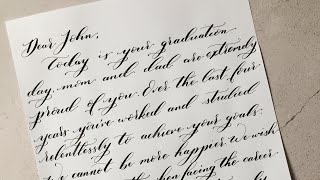 Dear John,
Today is your graduation
day, mom and dad are extremely
proud of you. Over the last four
years you've worked and studied
relentlessly to achieve your goals.
we cannot be more happier. We wish
when facing the career